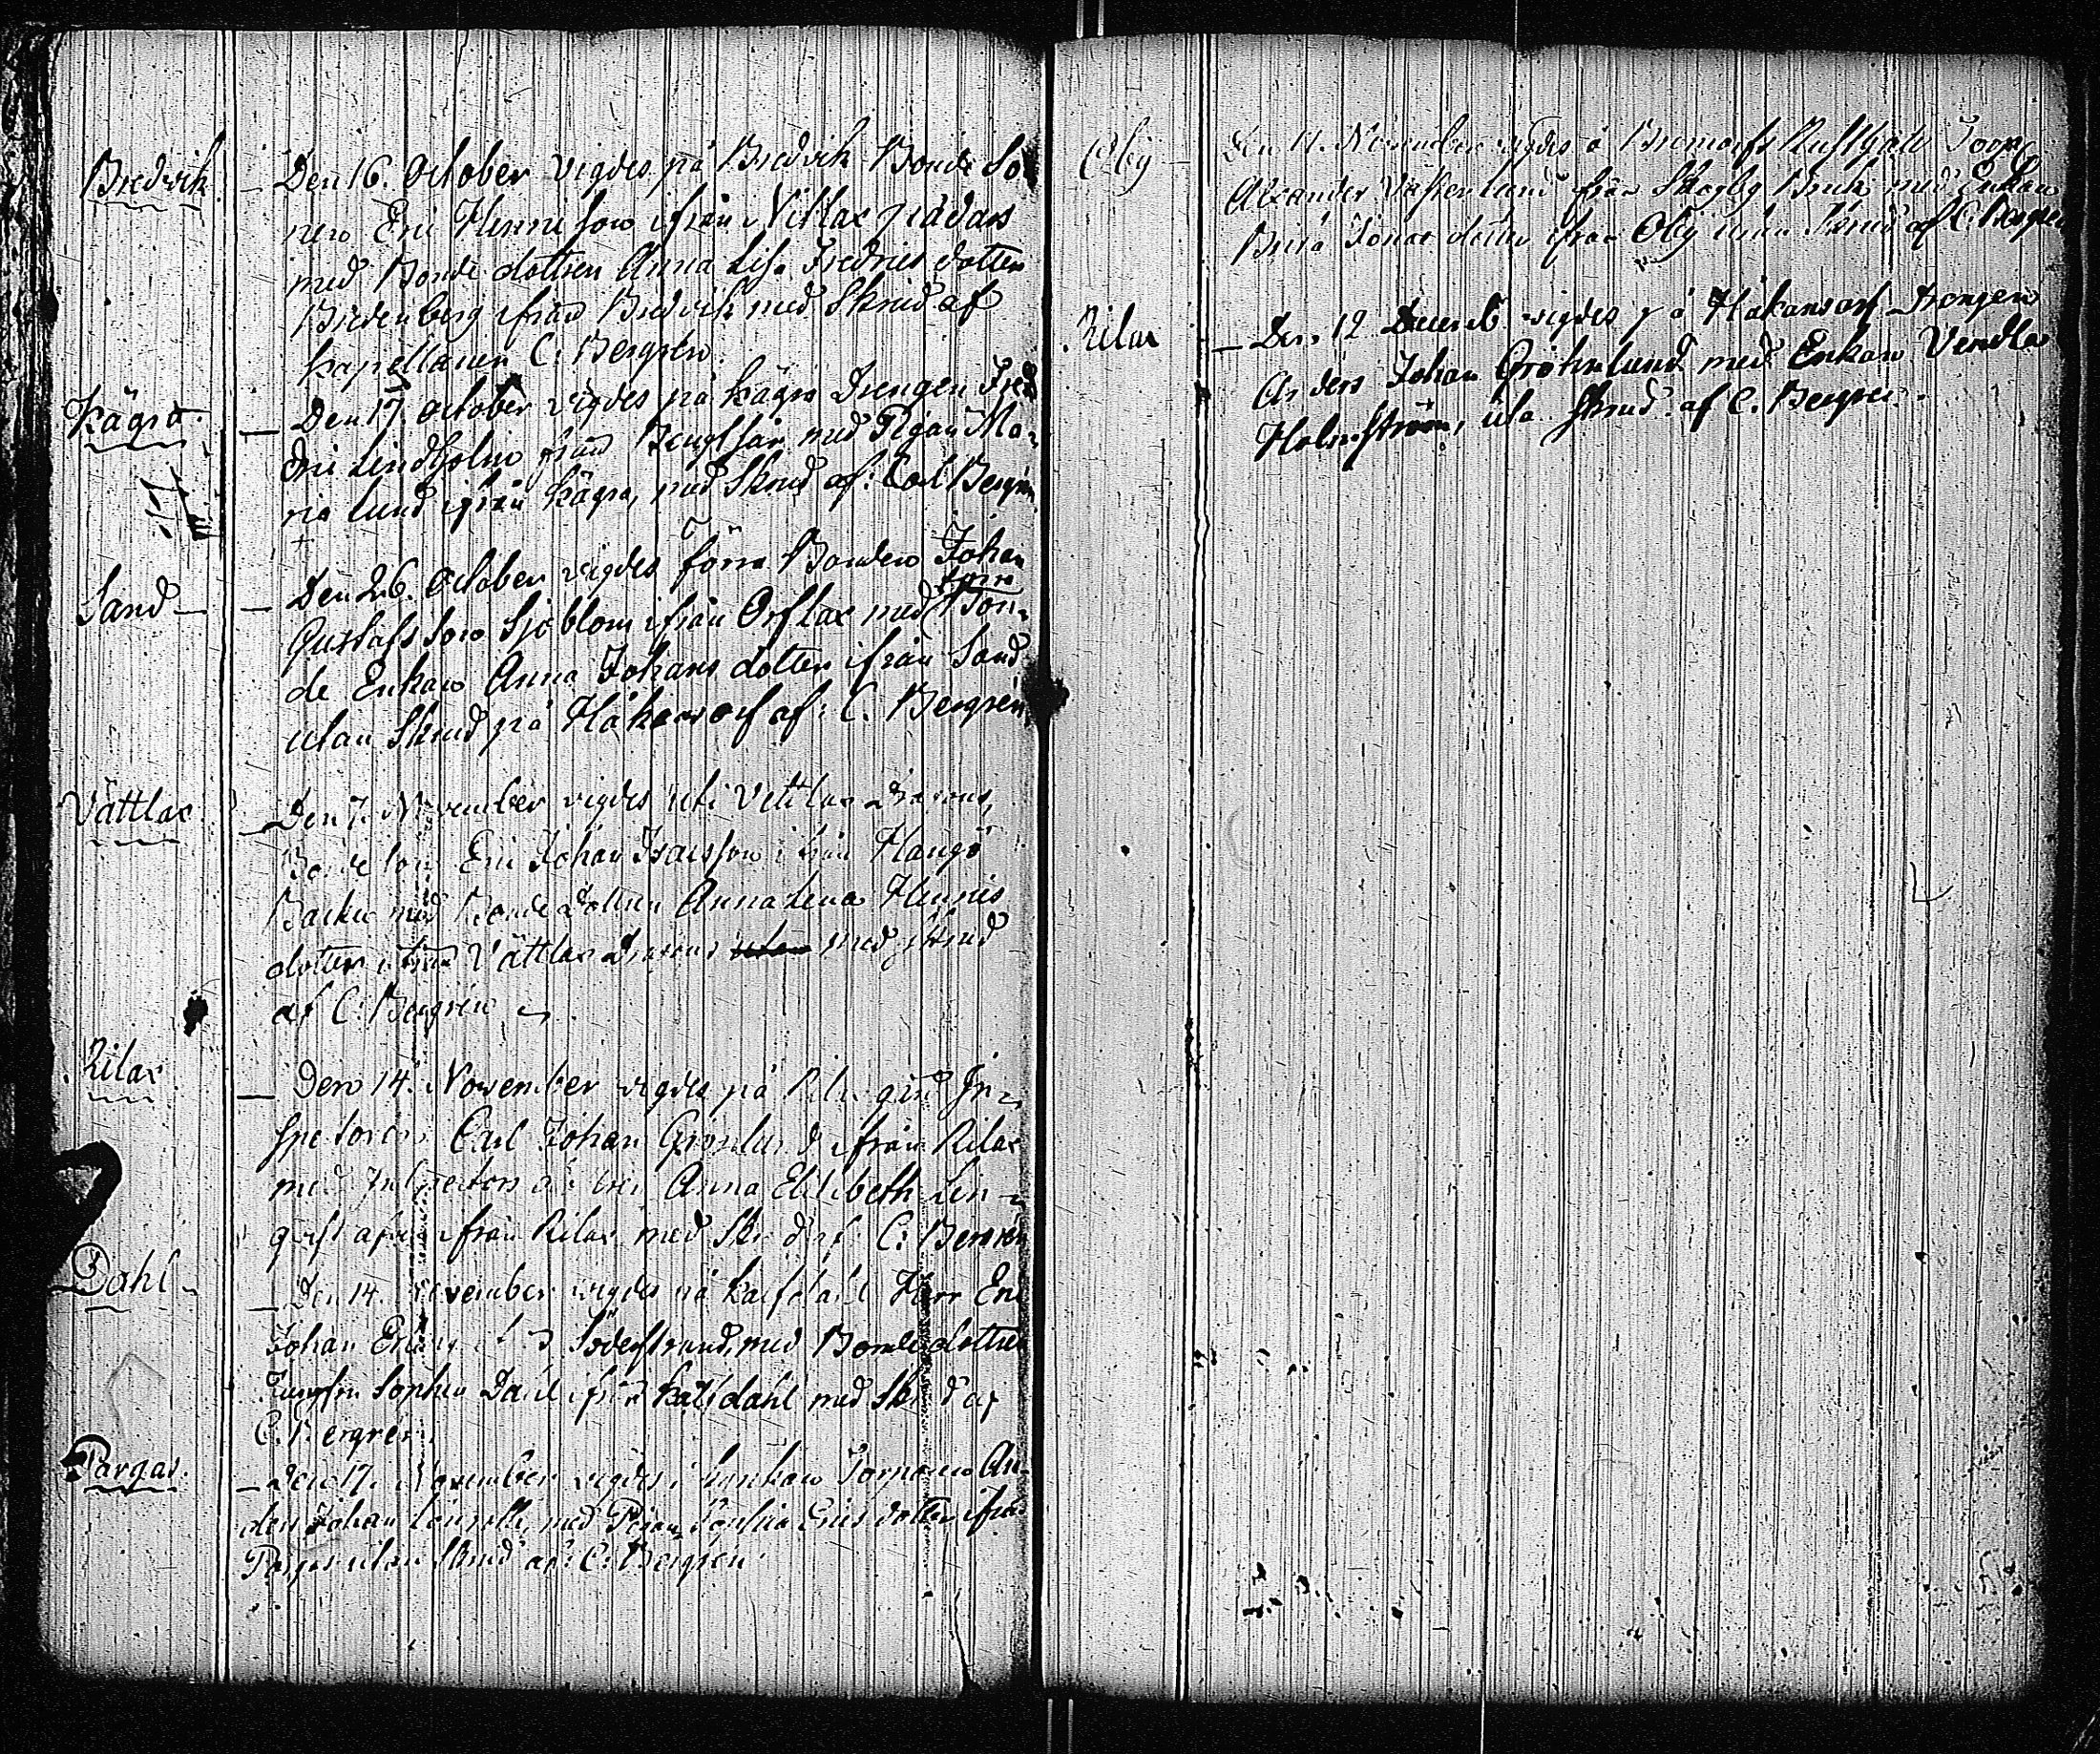 Bredvik
Den 16. October vigdes på Bredvik Bonde So
nen Eric Henricson ifrån Nitlax
med Bonde dottren Anna Lisa Fredrics dotter
Bredenberg ifrån Bredvik med Skrud af
Kapellanen C. Bergrén.
Kägra.
Den 17 October vigdes på Kägra Drengen Fred
ric Lindholm från med Pigan Ma-
ria Lund ifrån Kägra, med Skrud af: Carl Bergrén
Sand
Den 26. October vigdes förra Bonden Johan
Gustafs Son Sjöblom ifrån Orslax med förra Bon-
de Enkan Anna Johans dotter ifrån Sand
utan Skrud på Håkansarf af: C. Bergrén
Vättlax.
Den 7. November vigdes uti Vettlax
Bonde Son Eric Johan Isacsson ifrån Hangö
med Bonde dottren Anna Lena Henrics
dotter ifrån Vättlax utan med Skrud
af C. Bergrén
Rilax
Den 14. November vigdes på Rilax gård In-
spectoren Carl Johan Grönlund ifrån Rilax
med Inspectors Anna Elisabeth
ifrån Rilax med Skrud af C. Bergrén
Dahl
Den 14. November vigdes på Kalfdahl Herr Eric
Johan Söderstrand, med Bonde dottren
Jungfru Sophia Dahl ifrån Kalfdahl med Skrud af
C. Bergrén.
Pargas.
Den 17. November vigdes i Torparen An-
ders Johan med Pigan Ericsdotter ifrån
Pargas utan Skrud af: C. Bergrén
Öby
Den 11. November vigdes å Bromarfs
Alexander Västerlund från Skogby Bruk med Enkan
Jonas dotter ifrån Öby utan Skrud af C. Bergrén
Rilax
Den 12 Decemb. vigdes på Håkansarf Drengen
Anders Johan Gröhnlund med Enkan Vendla
Holmström, uta Skrud. af C. Bergrén.